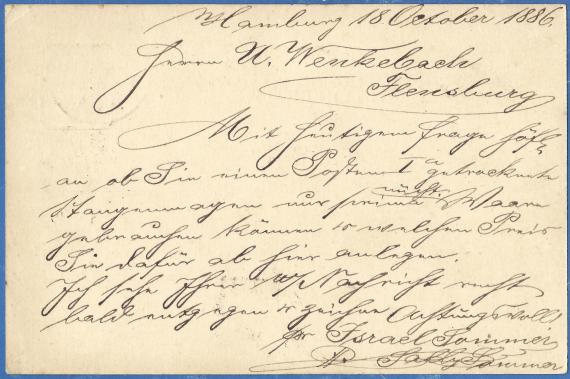 Hamburg 18 October 1886.
Herrn U. Wenkebach
Flensburg
Mit Heutigem frage höfl.
an ob Sie einen Posten Iª getrocknete
nur prima Waare
gebrauchen können & welchen Preis
Sie dafür ab hier anlegen.
Ich sehe Ihrer Nachricht recht
bald entgegen & zeichne Achtungsvoll
pr Israel Sommer
Sally Sommer